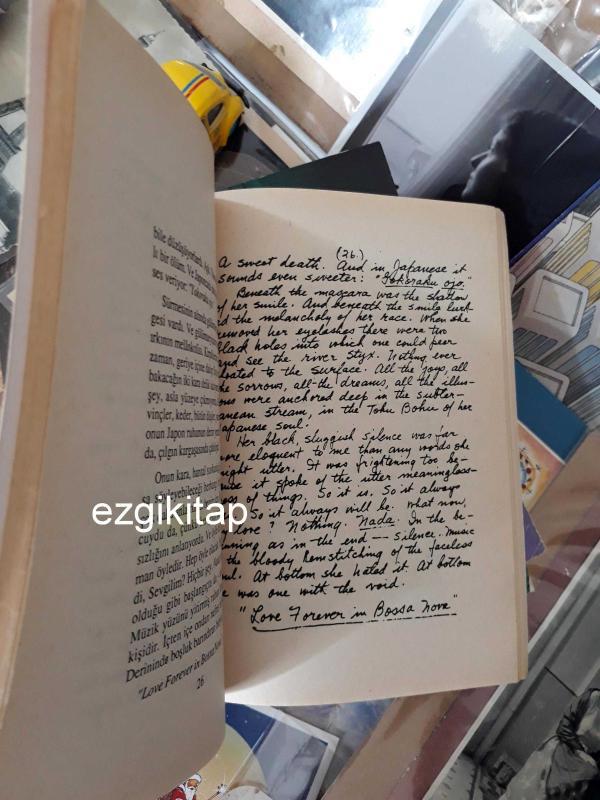 lı bir ölüm. Ve
ses veriyor:
Sürmesinin altında
gesi vardı. Ve
ırkının melankolisi.
zaman, geriye
bakacağın iki kara
şey, asla yüzeye
vinçler, keder, bütün
onun Japon ruhunun
da, çılgın kargaşasında
Onun kara, hantal
cuydu da,
sızlığını anlıyordu. Ve
man öyledir. Hep öyle
di, Sevgilim? Hiçbir şey.
olduğu gibi başlangıçta
Müzik yüzünü yitirmiş
kişidir. İçten içe ondan
Derininde boşluk
"Love Forever in Bossa Nova
26
(26.)
A sweet death. And in Japanese it
sounds even sweeter: "Gokuraku ojo."
Beneath the mascara was the shadow
of her smile. And beneath the smile lurk-
ed the melancholy of her race. When she
removed her eyelashes there were two
black holes into which one could peer
and see the river Styx. Nothing ever
loated to the surface. All the joys, all
he sorrows, all the dreams, all the illu-
ons were anchored deep in the subter-
anean stream, in the Tohu Bohu of her
apanese soul.
Her black, sluggish silence was far
ore eloquent to me than any words she
ight utter. It was frightening too be-
use it spoke of the utter meaningless-
ess of things. So it is. So it always
So it always will be. What now,
y love? Nothing. Nada. In the be-
inning as in the end — silence. Music
the bloody hemstitching of the faceless
oul. At bottom she hated it. At bottom
e was one with the void.
"Love Forever in Bossa Nova"
ezgikitap